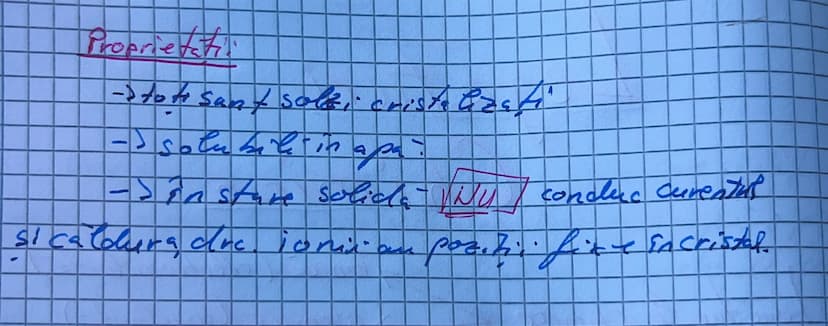 Proprietați:
-> toți sant solizi cristalizați
-> solubili in apa
-> În stare solida NU conduc curentul
și caldura, drc. ionii au poziții fixe in cristal.